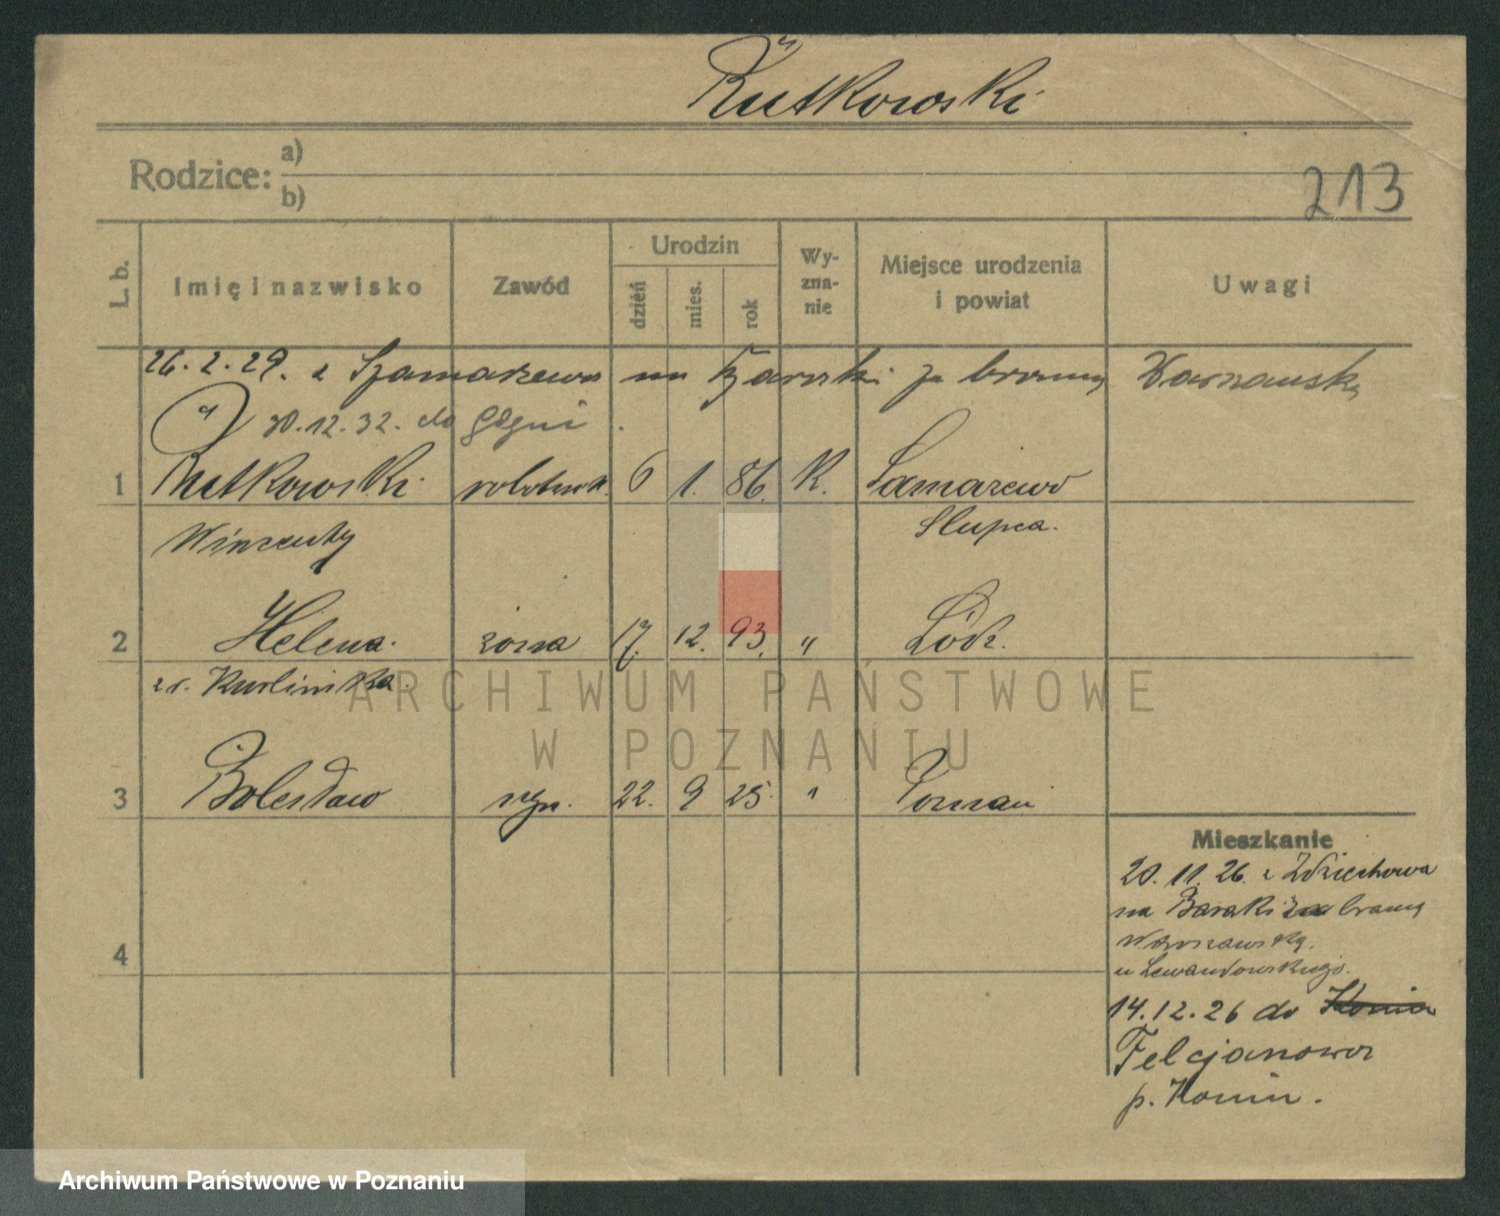 Rutkowski
Rodzice: a)
b)
213
L. b. Imię i nazwisko Zawód Urodzin dzień mies. rok Wyznanie Miejsce urodzenia i powiat Uwagi
26. 2. 29. z Szamarzewa na za bramą Warszawską
30. 12. 32. do Gdyni.
1 Rutkowski robotnik. 6 1. 86. K. Samarzewo
Wincenty Słupca.
2 Helena. żona 17. 12. 93. " Łódź.
3 Bolesław syn. 22. 9 25. " Poznań
Mieszkanie
20. 11. 26. z Zdziechowa
na Baraki za bramą
Warszawską.
u Lewandowskiego.
4
14. 12. 26 do Konin
Felcjanowa
p. Konin.
ARCHIWUM PAŃSTWOWE
W POZNANIU
Archiwum Państwowe w Poznaniu